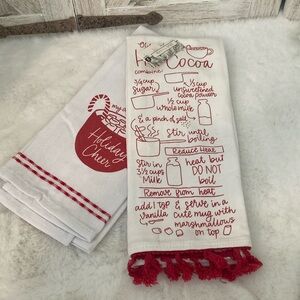 Cocoa
combine
3/4 cup
Sugar
1/3 cup
unsweetened
cocoa powder
1/2 cup
whole milk
& a pinch of salt
Stir until
boiling
Reduce Heat
Stir in
3 1/2 cups
Milk
heat but
DO NOT
boil
Remove from heat
add 1 tsp
Vanilla
& serve in a
cute mug with
marshmallows
on top
Holiday
Cheer